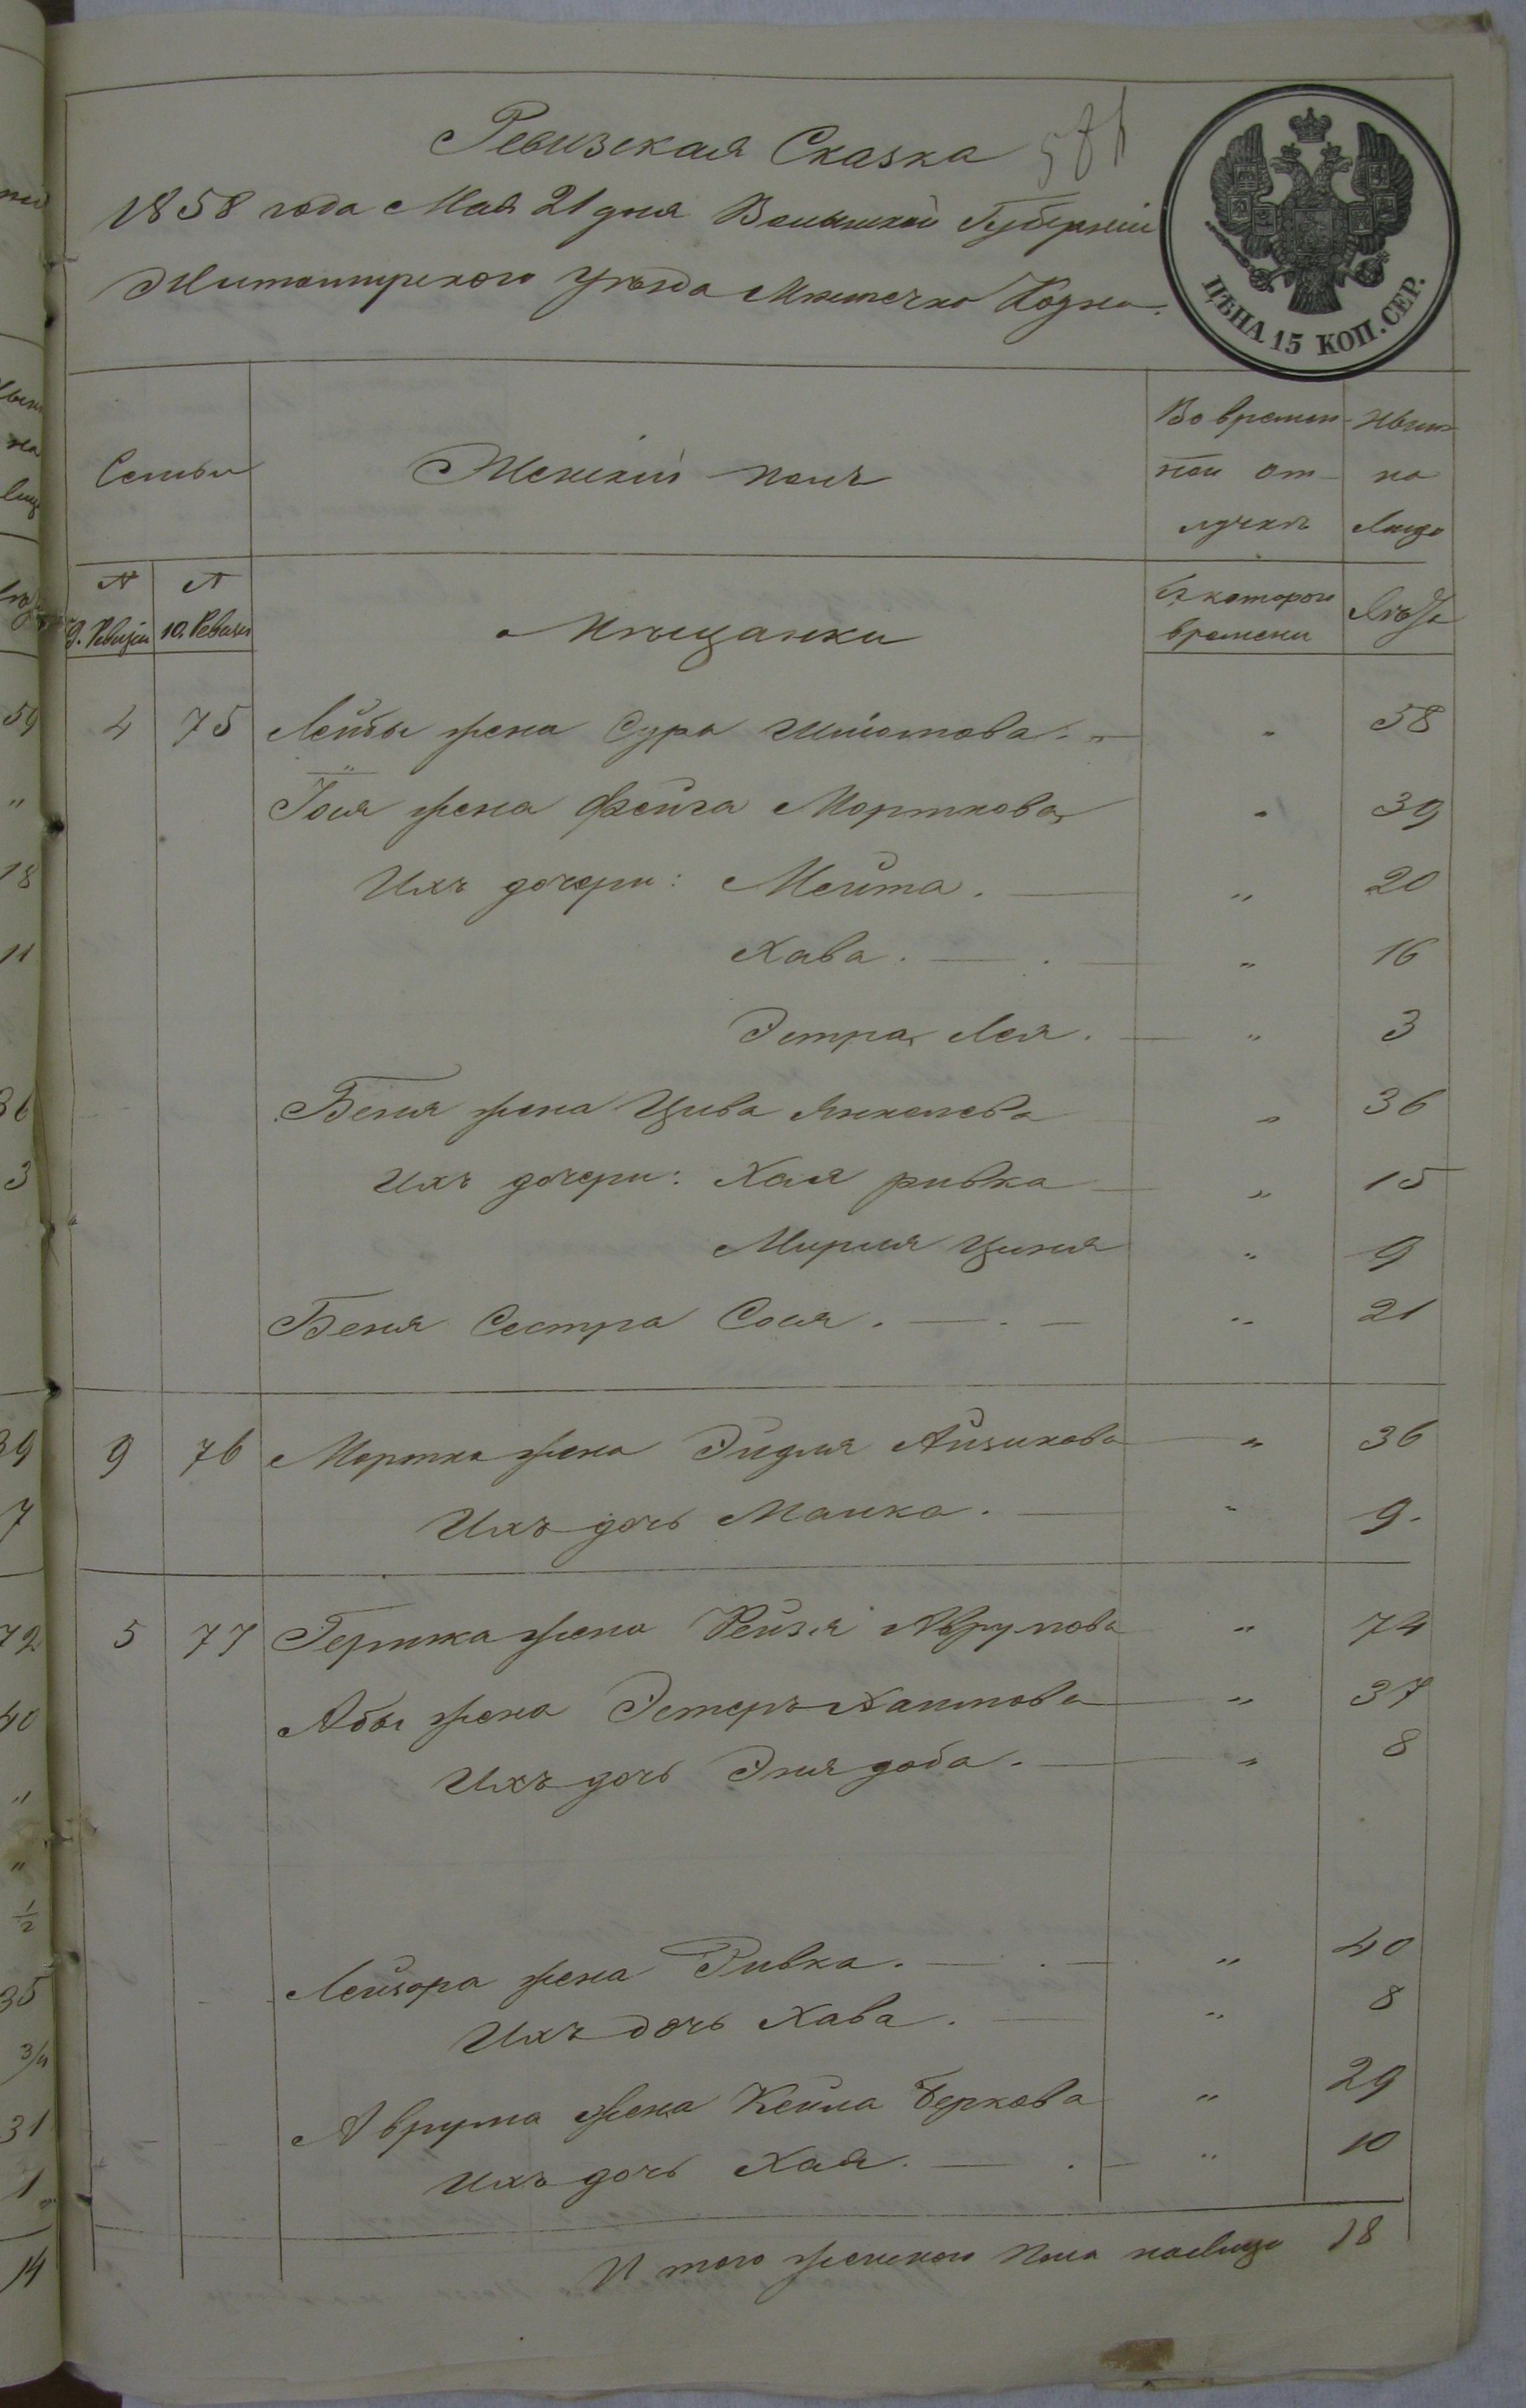 Ревизская Сказка
1858 года Мая 21 дня Волынской Губерніи
Житомирского Уѣзда Мѣстечко Кодно.
ЦѢНА 15 КОП. СЕР.
Семьи
Женскій полъ
Во времен-
ной от-
лучкѣ
на
Лицо
№ 9. Ревизіи
№ 10. Ревизіи
Мѣщанки
Съ которого времени
Лѣта
4 75 Лейбы жена Сура „ 58
Іося жена Фейга Морткова „ 39
Ихъ дочери: Мейта. „ 20
Хава. „ 16
Эстра Лея. „ 3
Беня жена Цива Янкелева „ 36
Ихъ дочери: Хая ривка „ 15
Мирля Циня „ 9
Беня Сестра Сося. „ 21
9 76 Мортка жена Эйдля Айзикова „ 36
Ихъ дочь Малка. „ 9.
5 77 Гершка жена Рейзя Аврумова „ 74
Абы жена Эстеръ Хаимова „ 37
Ихъ дочь Эня доба. „ 8
Лейзора жена Ривка. „ 40
Ихъ дочь Хава. „ 8
Аврума жена Кейла Беркова „ 29
Ихъ дочь Хая. „ 10
Итого женского пола налицо 18